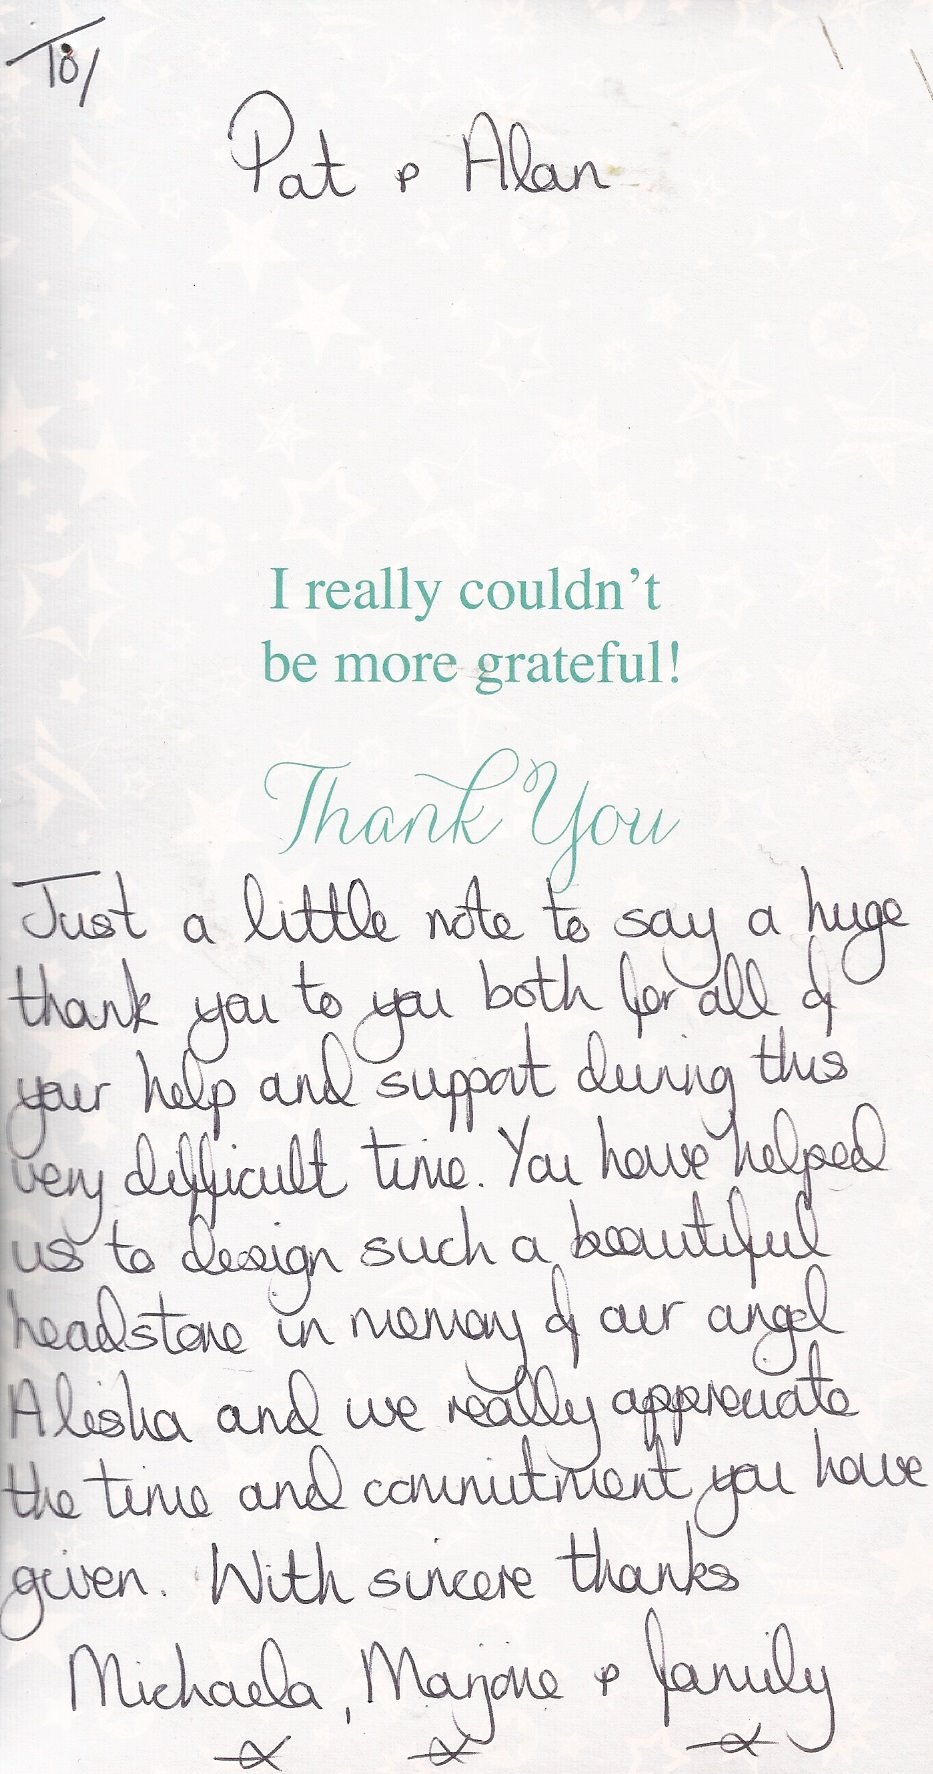 To/
Pat & Alan
I really couldn't
be more grateful!
Thank You
Just a little note to say a huge
thank you to you both for all of
your help and support during this
very difficult time. You have helped
us to design such a beautiful
headstone in memory of our angel
Alisha and we really appreciate
the time and commitment you have
given. With sincere thanks
Michaela, Marjorie & family
x x x